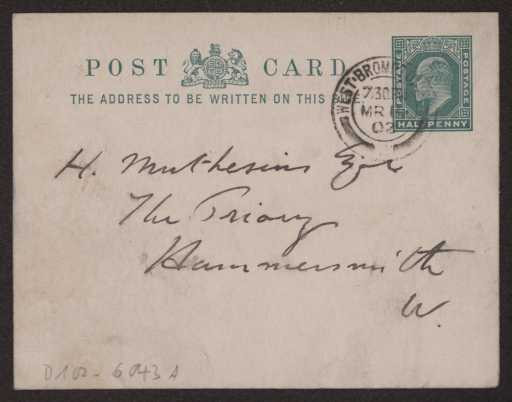 POST CARD
THE ADDRESS TO BE WRITTEN ON THIS
WEST·BROM
730
MR
02
POSTAGE
POSTAGE
HALFPENNY
H. Muthesius Esqr
The Priory
Hammersmith
W.
D 102-6043 A